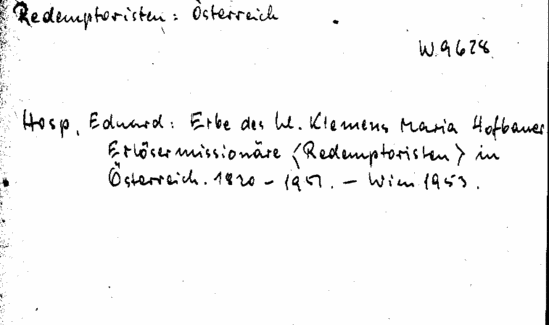 Redemptoristen: Österreich
W 9628
Hosp, Eduard: Erbe des hl. Klemens Maria Hofbauer
Erlösermissionäre <Redemptoristen> in
Österreich. 1820 - 1951. - Wien 1953.